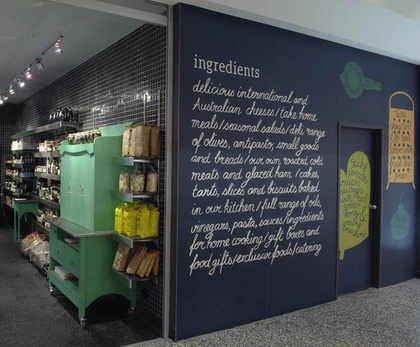 ingredients
delicious international and
Australian cheeses/take home
meals/seasonal salads/deli range
of olives, antipasto, small goods
and breads/our own roasted cold
meats and glazed ham/cakes,
tarts, slices and biscuits baked
in our kitchen/full range of oils,
vinegars, pasta, sauces/ingredients
for home cooking/gift boxes and
food gifts/exclusive foods/catering